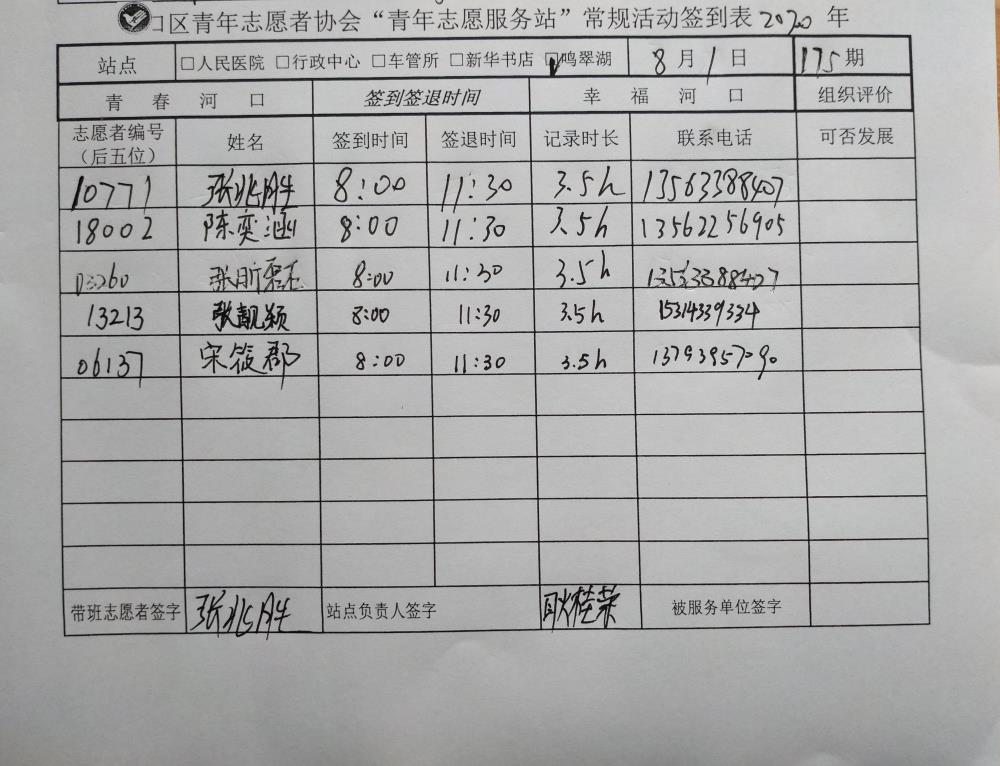 口区青年志愿者协会“青年志愿服务站”常规活动签到表2020年
站点 □人民医院 □行政中心 □车管所 □新华书店 ☑鸣翠湖 8月1日 175期
青春河口 签到签退时间 幸福河口 组织评价
志愿者编号（后五位） 姓名 签到时间 签退时间 记录时长 联系电话 可否发展
10771 张兆胜 8:00 11:30 3.5h 13563388407
18002 陈奕涵 8:00 11:30 3.5h 13562256905
03260 张昕磊 8:00 11:30 3.5h 13563388407
13213 张靓颖 8:00 11:30 3.5h 15314339334
06137 宋筱郡 8:00 11:30 3.5h 13793957090
带班志愿者签字 张兆胜 站点负责人签字 耿桂荣 被服务单位签字